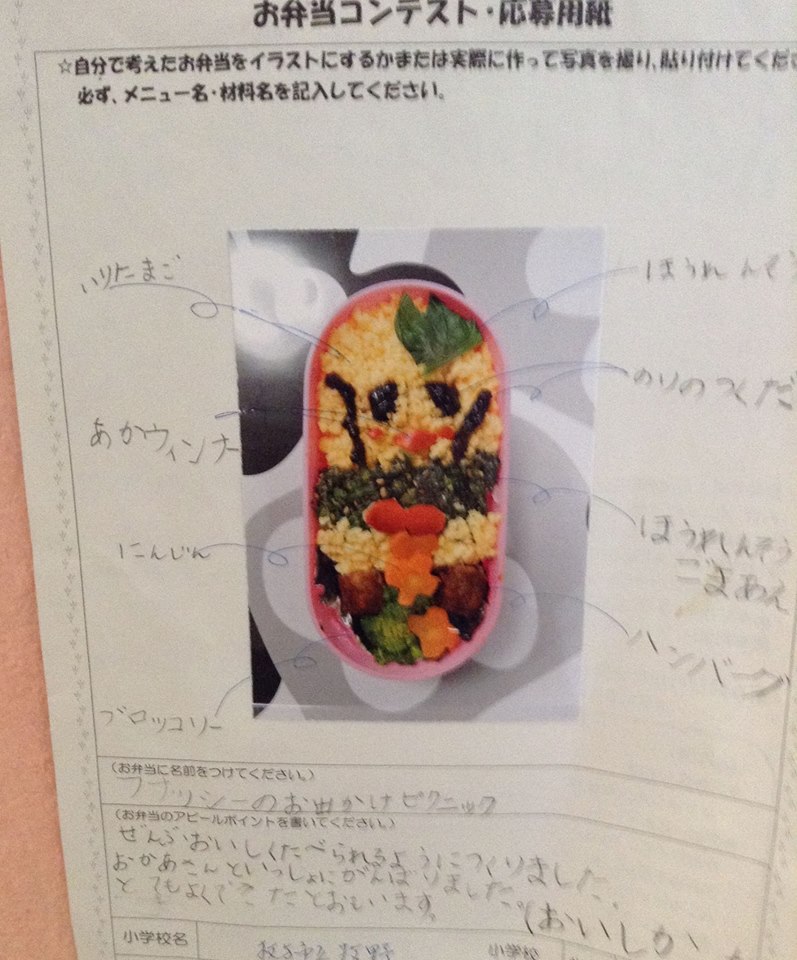 お弁当コンテスト・応募用紙
☆自分で考えたお弁当をイラストにするかまたは実際に作って写真を撮り、貼り付けてくださ
必ず、メニュー名・材料名を記入してください。
いりたまご
ほうれんそう
のりのつくだ
あかウィンナー
ほうれんそう
ごまあえ
にんじん
ハンバーグ
ブロッコリー
(お弁当に名前をつけてください。)
フナッシーのお出かけピクニック
(お弁当のアピールポイントを書いてください。)
ぜんぶおいしくたべられるようにつくりました。
おかあさんといっしょにがんばりました。
とてもよくできたとおもいます。
(おいしか
小学校名
牧野
小学校